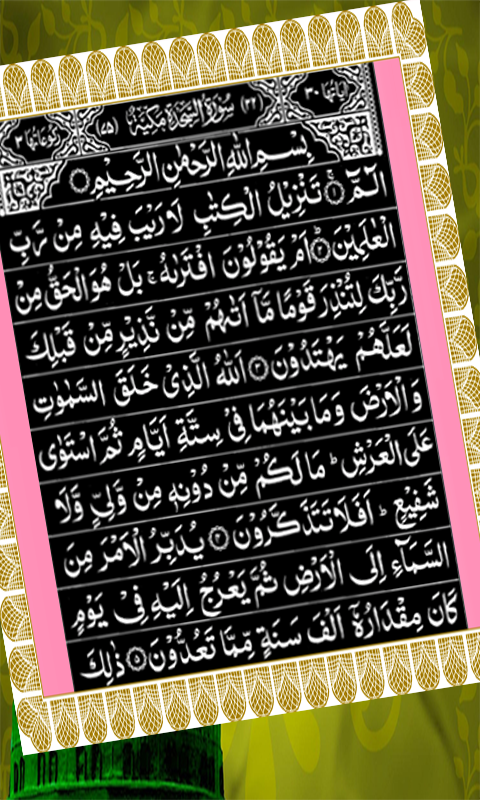 اٰیَاتُهَا ٣٠ (٣٢) سُوْرَةُ السَّجْدَةِ مَكِّیَّةٌ (٧٥) رُكُوْعَاتُهَا ٣
بِسْمِ اللّٰهِ الرَّحْمٰنِ الرَّحِیْمِ
الٓمّٓ ۝١ تَنْزِیْلُ الْكِتٰبِ لَا رَیْبَ فِیْهِ مِنْ رَّبِّ
الْعٰلَمِیْنَ ۝٢ اَمْ یَقُوْلُوْنَ افْتَرٰىهُ ۚ بَلْ هُوَ الْحَقُّ مِنْ
رَّبِّكَ لِتُنْذِرَ قَوْمًا مَّاۤ اَتٰىهُمْ مِّنْ نَّذِیْرٍ مِّنْ قَبْلِكَ
لَعَلَّهُمْ یَهْتَدُوْنَ ۝٣ اَللّٰهُ الَّذِیْ خَلَقَ السَّمٰوٰتِ
وَ الْاَرْضَ وَ مَا بَیْنَهُمَا فِیْ سِتَّةِ اَیَّامٍ ثُمَّ اسْتَوٰى
عَلَى الْعَرْشِ ؕ مَا لَكُمْ مِّنْ دُوْنِهٖ مِنْ وَّلِیٍّ وَّ لَا
شَفِیْعٍ ؕ اَفَلَا تَتَذَكَّرُوْنَ ۝٤ یُدَبِّرُ الْاَمْرَ مِنَ
السَّمَآءِ اِلَى الْاَرْضِ ثُمَّ یَعْرُجُ اِلَیْهِ فِیْ یَوْمٍ
كَانَ مِقْدَارُهٗۤ اَلْفَ سَنَةٍ مِّمَّا تَعُدُّوْنَ ۝٥ ذٰلِكَ